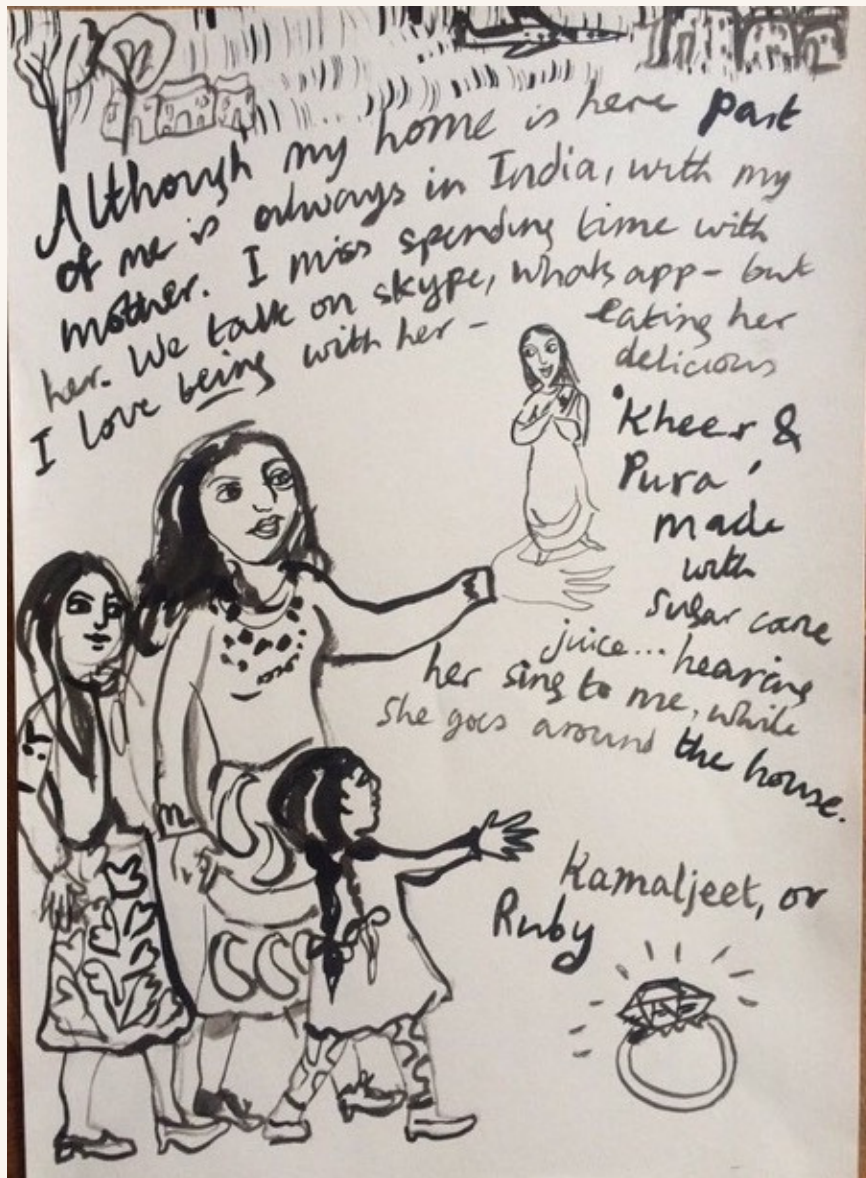 Although my home is here part
of me is always in India, with my
mother. I miss spending time with
her. We talk on skype, whats app - but
I love being with her -
eating her
delicious
'Kheer &
Pura'
made
with
sugar cane
juice... hearing
her sing to me, while
she goes around the house.
Kamaljeet, or
Ruby